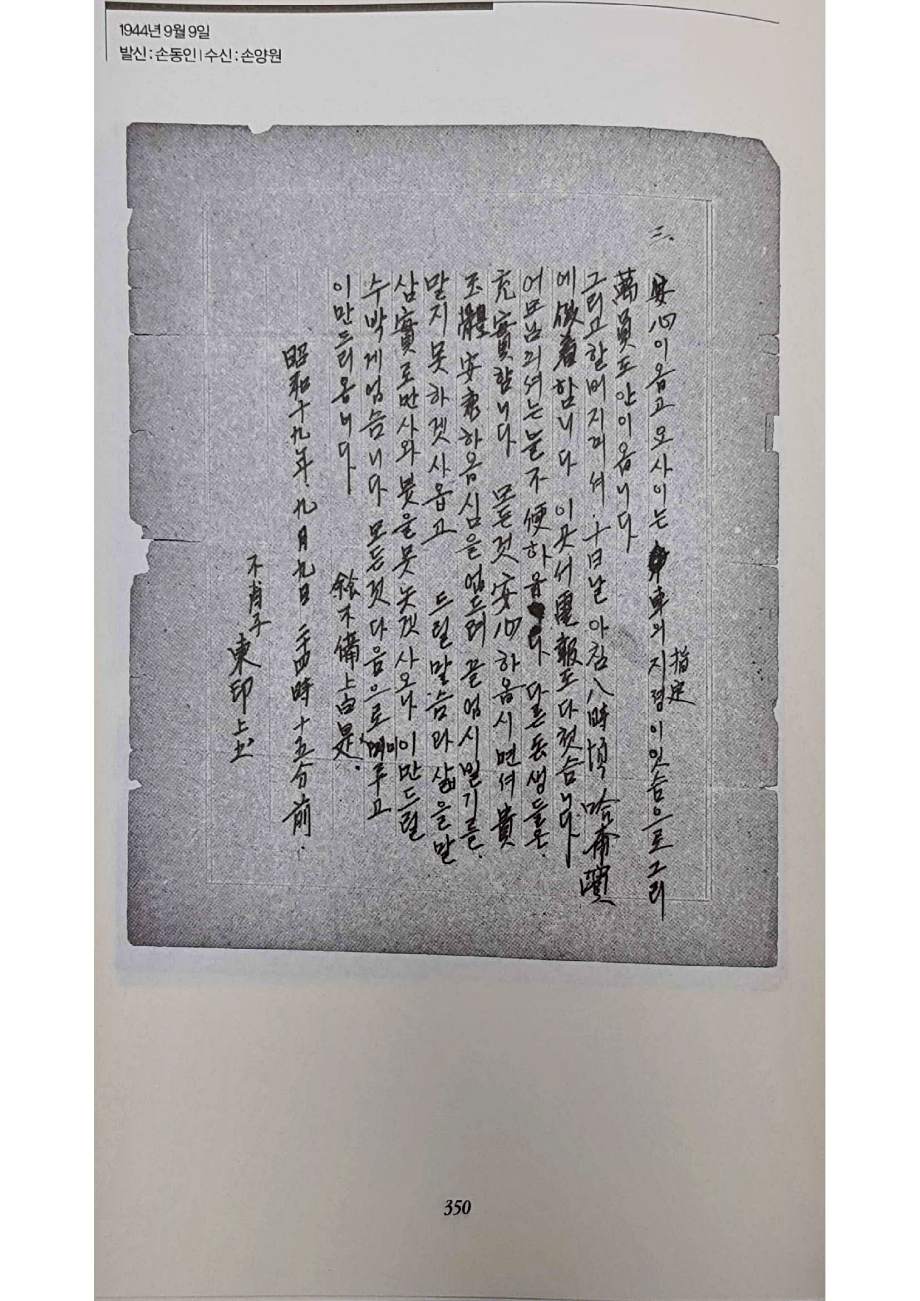 1944년 9월 9일
발신 : 손동인 | 수신 : 손양원
三、
安心이옵고 오사이는 車의 지정이잇슴으로 그리
指定
萬員도 안이옵니다
그리고 할머지끠셔. 十日날 아참 八時頃 哈甭賓
에 倒着함니다 이곳서 電報도 다 첫슴니다
어모님끠셔는 늘 不便하옵 다 다른 동생들은.
充實함니다 모든것 安心하옵시면셔 貴
玉體 安康하옴심을 업드려 끝업시 밀기를.
말지 못하겟사옵고 드릴말슴과 삶을 말
삼 實로 만사와 붓을 못놋겟사오나 이만드릴
수박게 업슴니다 모든것 다음으로 미루고
이만드리옵니다 餘不備上白是.
昭和十九年 九月九日 二十四時十五分前.
不肖子
東印 上書
350